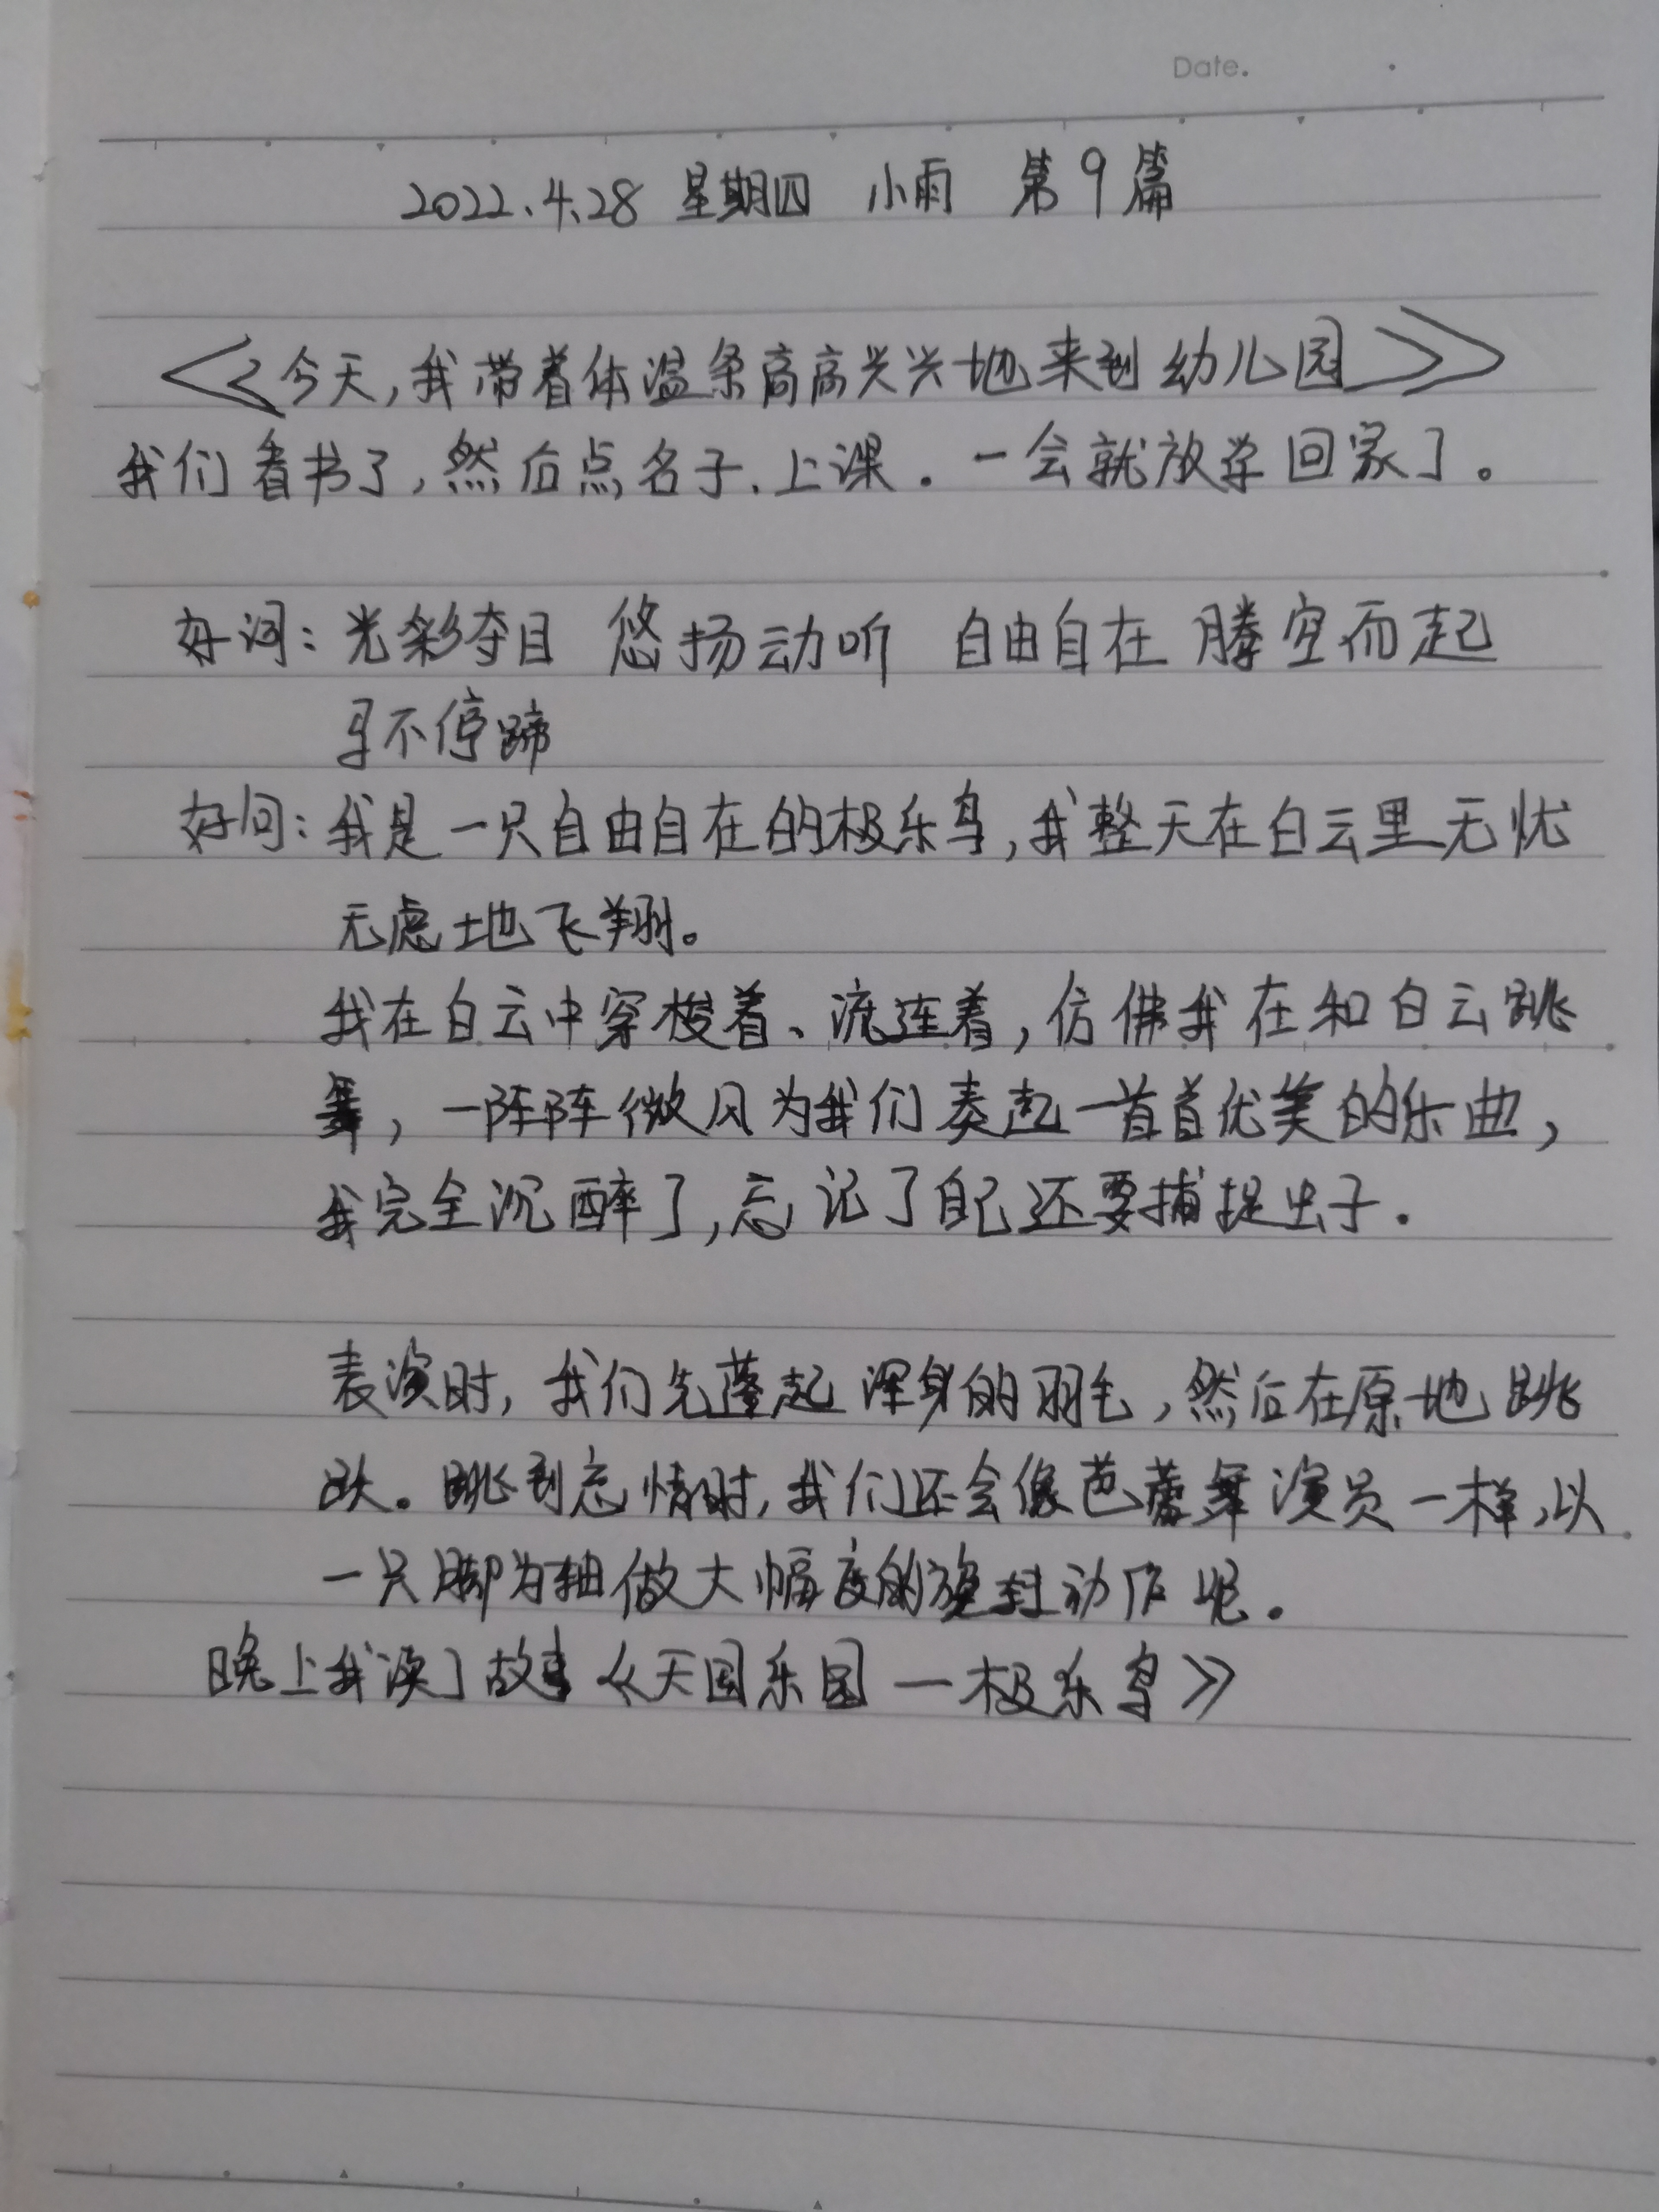 Date.
2022.4.28 星期四 小雨 第9篇
《今天,我带着体温条高高兴兴地来到幼儿园》
我们看书了,然后点名子、上课.一会就放学回家了。
好词:光彩夺目 悠扬动听 自由自在 腾空而起
马不停蹄
好句:我是一只自由自在的极乐鸟,我整天在白云里无忧
无虑地飞翔。
我在白云中穿梭着、流连着,仿佛我在和白云跳
舞,一阵阵微风为我们奏起一首首优美的乐曲,
我完全沉醉了,忘记了自己还要捕捉虫子.
表演时,我们先蓬起浑身的羽毛,然后在原地跳
跃。跳到忘情时,我们还会像芭蕾舞演员一样,以
一只脚为轴做大幅度的旋转动作呢.
晚上我读了故事《天国乐园一极乐鸟》